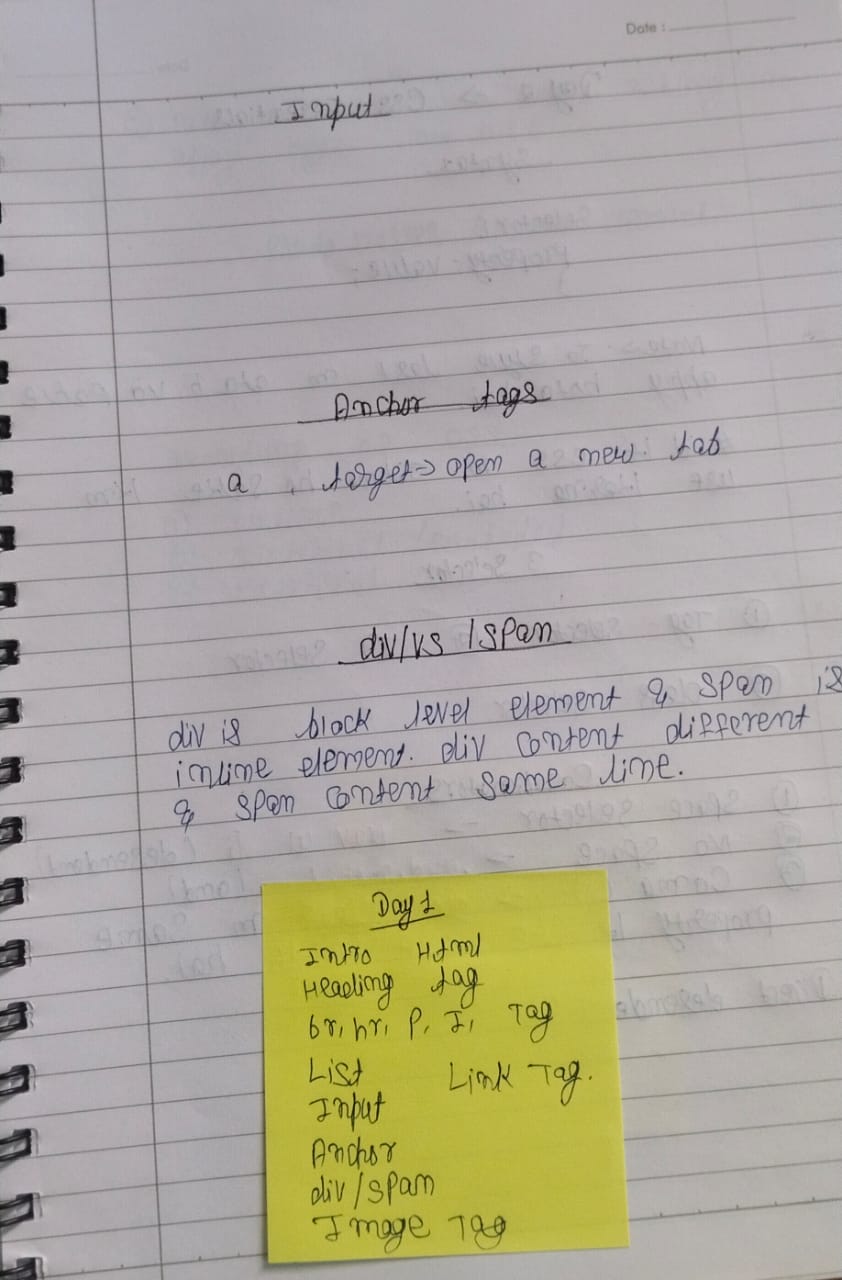 Date :
Input
Anchor tags
a , target→ open a new tab
div/vs /span
div is block level element & span is
inline element. div content different
& span content same line.
Day 1
Intro Html
Heading tag
br, hr, P, I, Tag
List Link Tag.
Input
Anchor
div/span
Image Tag